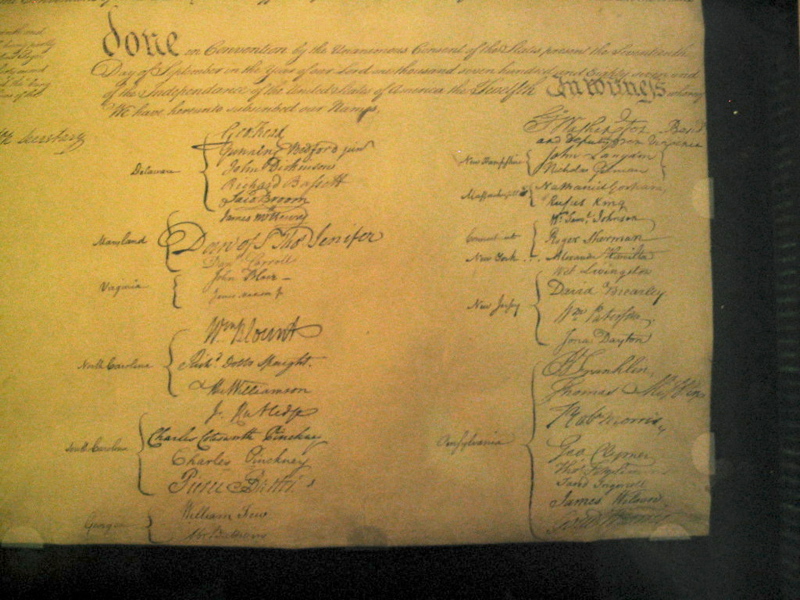 done in Convention by the Unanimous Consent of the States present the Seventeenth
Day of September in the Year of our Lord one thousand seven hundred and Eighty seven and
of the Independance of the United States of America the Twelfth In Witness whereof
We have hereunto subscribed our Names,
Secretary
Delaware
Geo: Read
Gunning Bedford jun
John Dickinson
Richard Bassett
Jaco: Broom
Maryland
James McHenry
Dan of St Thos Jenifer
Danl Carroll
Virginia
John Blair
James Madison Jr
North Carolina
Wm Blount
Richd Dobbs Spaight.
Hu Williamson
South Carolina
J. Rutledge
Charles Cotesworth Pinckney
Charles Pinckney
Pierce Butler
Georgia
William Few
Abr Baldwin
Go Washington Presidt
and deputy from Virginia
New Hampshire
John Langdon
Nicholas Gilman
Massachusetts
Nathaniel Gorham
Rufus King
Connecticut
Wm Saml Johnson
Roger Sherman
New York
Alexander Hamilton
New Jersey
Wil: Livingston
David Brearley
Wm Paterson
Jona: Dayton
Pensylvania
B Franklin
Thomas Mifflin
Robt Morris
Geo. Clymer
Thos FitzSimons
Jared Ingersoll
James Wilson